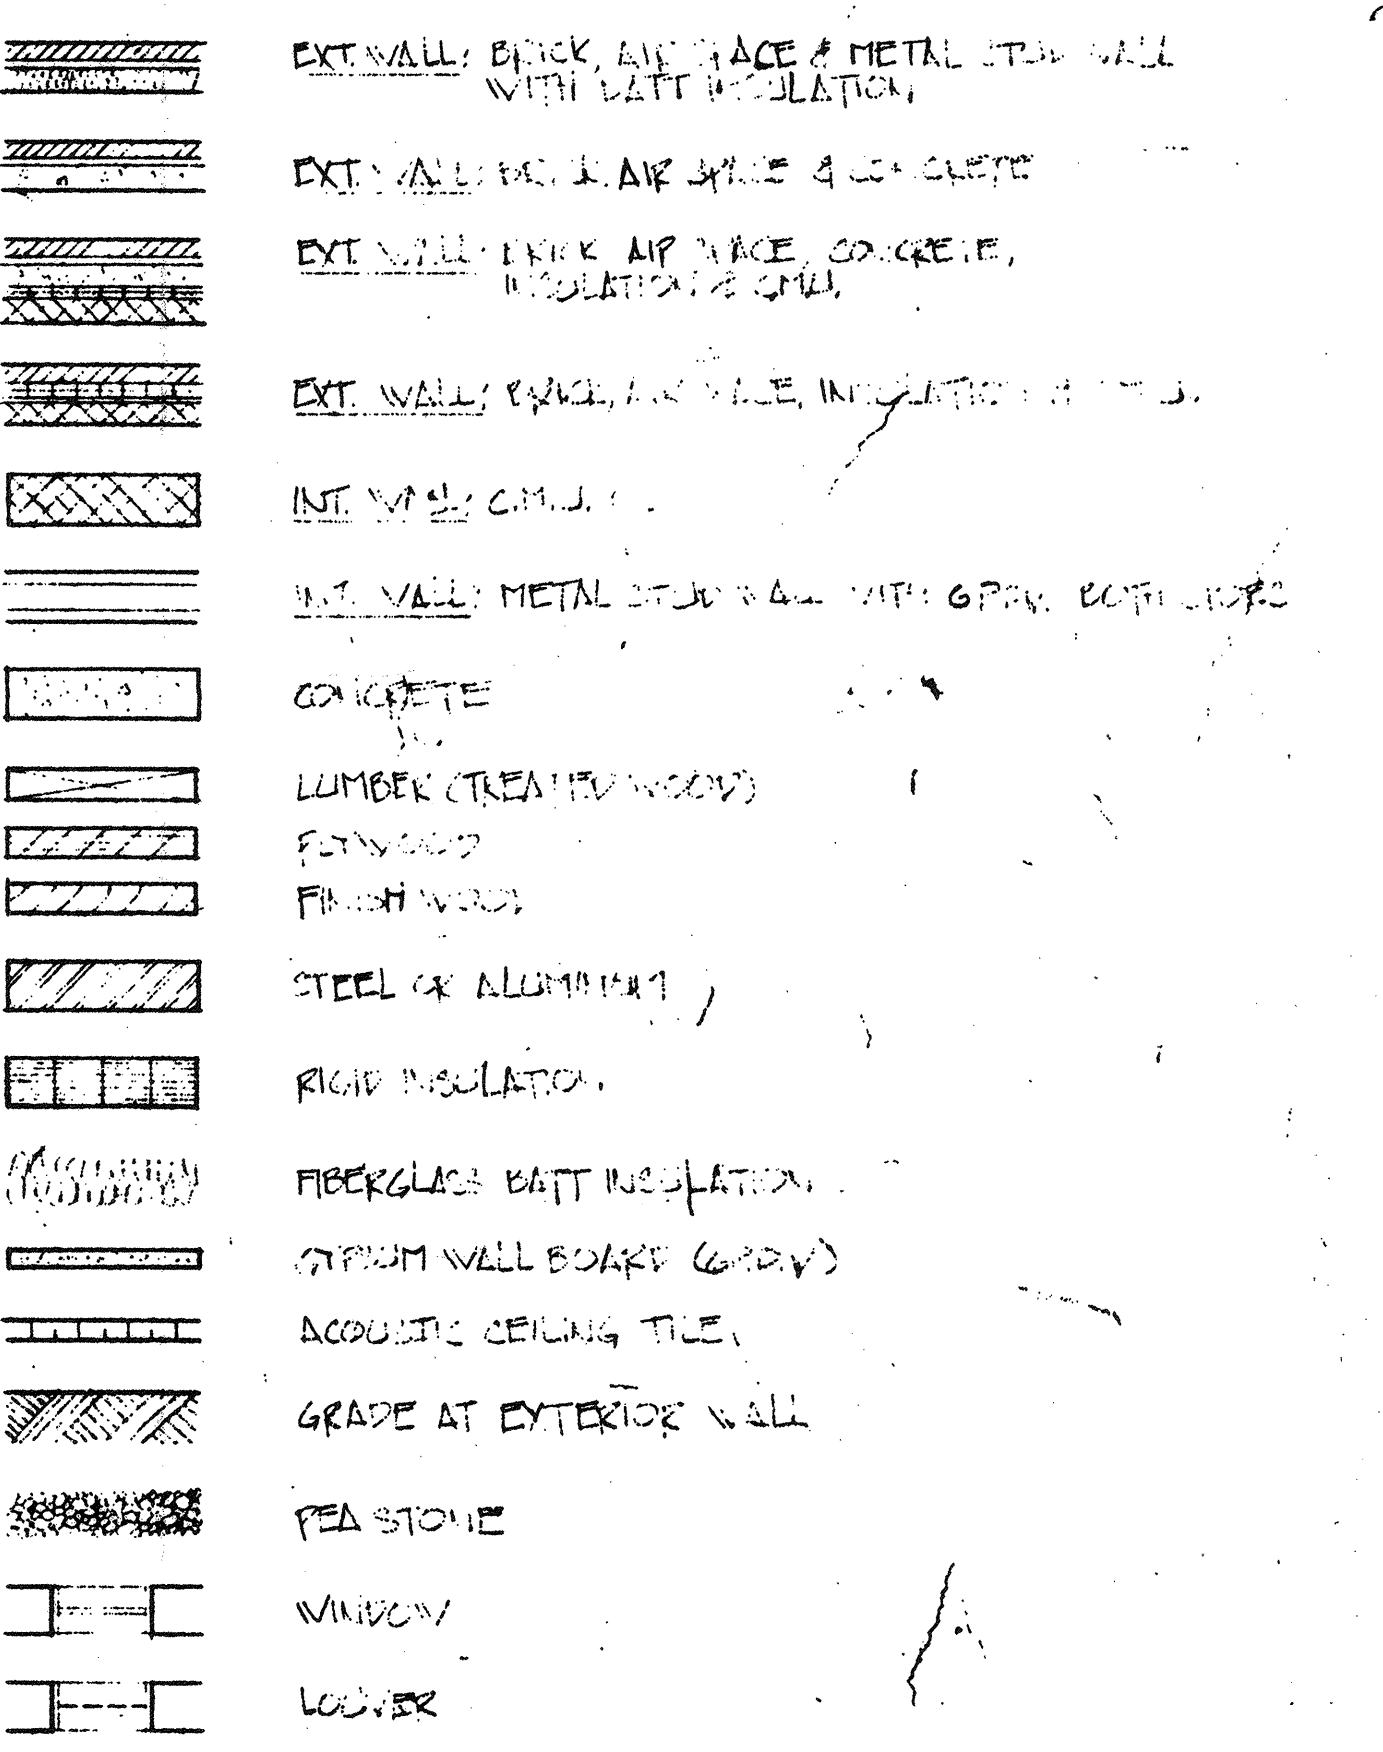 EXT. WALL: BRICK, AIR SPACE & METAL STUD WALL
WITH BATT INSULATION
EXT. WALL: BRICK AIR SPACE & CONCRETE
EXT. WALL: BRICK AIR SPACE, CONCRETE,
INSULATION & CMU.
EXT. WALL: BRICK, AIR SPACE, INSULATION
INT. WALL: C.M.U.
INT. WALL: METAL STUD WALL WITH BOTH SIDES
CONCRETE
LUMBER (TREATED WOOD)
PLYWOOD
FINISH WOOD
STEEL OR ALUMINUM
RIGID INSULATION
FIBERGLASS BATT INSULATION
GYPSUM WALL BOARD
ACOUSTIC CEILING TILE
GRADE AT EXTERIOR WALL
PEA STONE
WINDOW
LOUVER